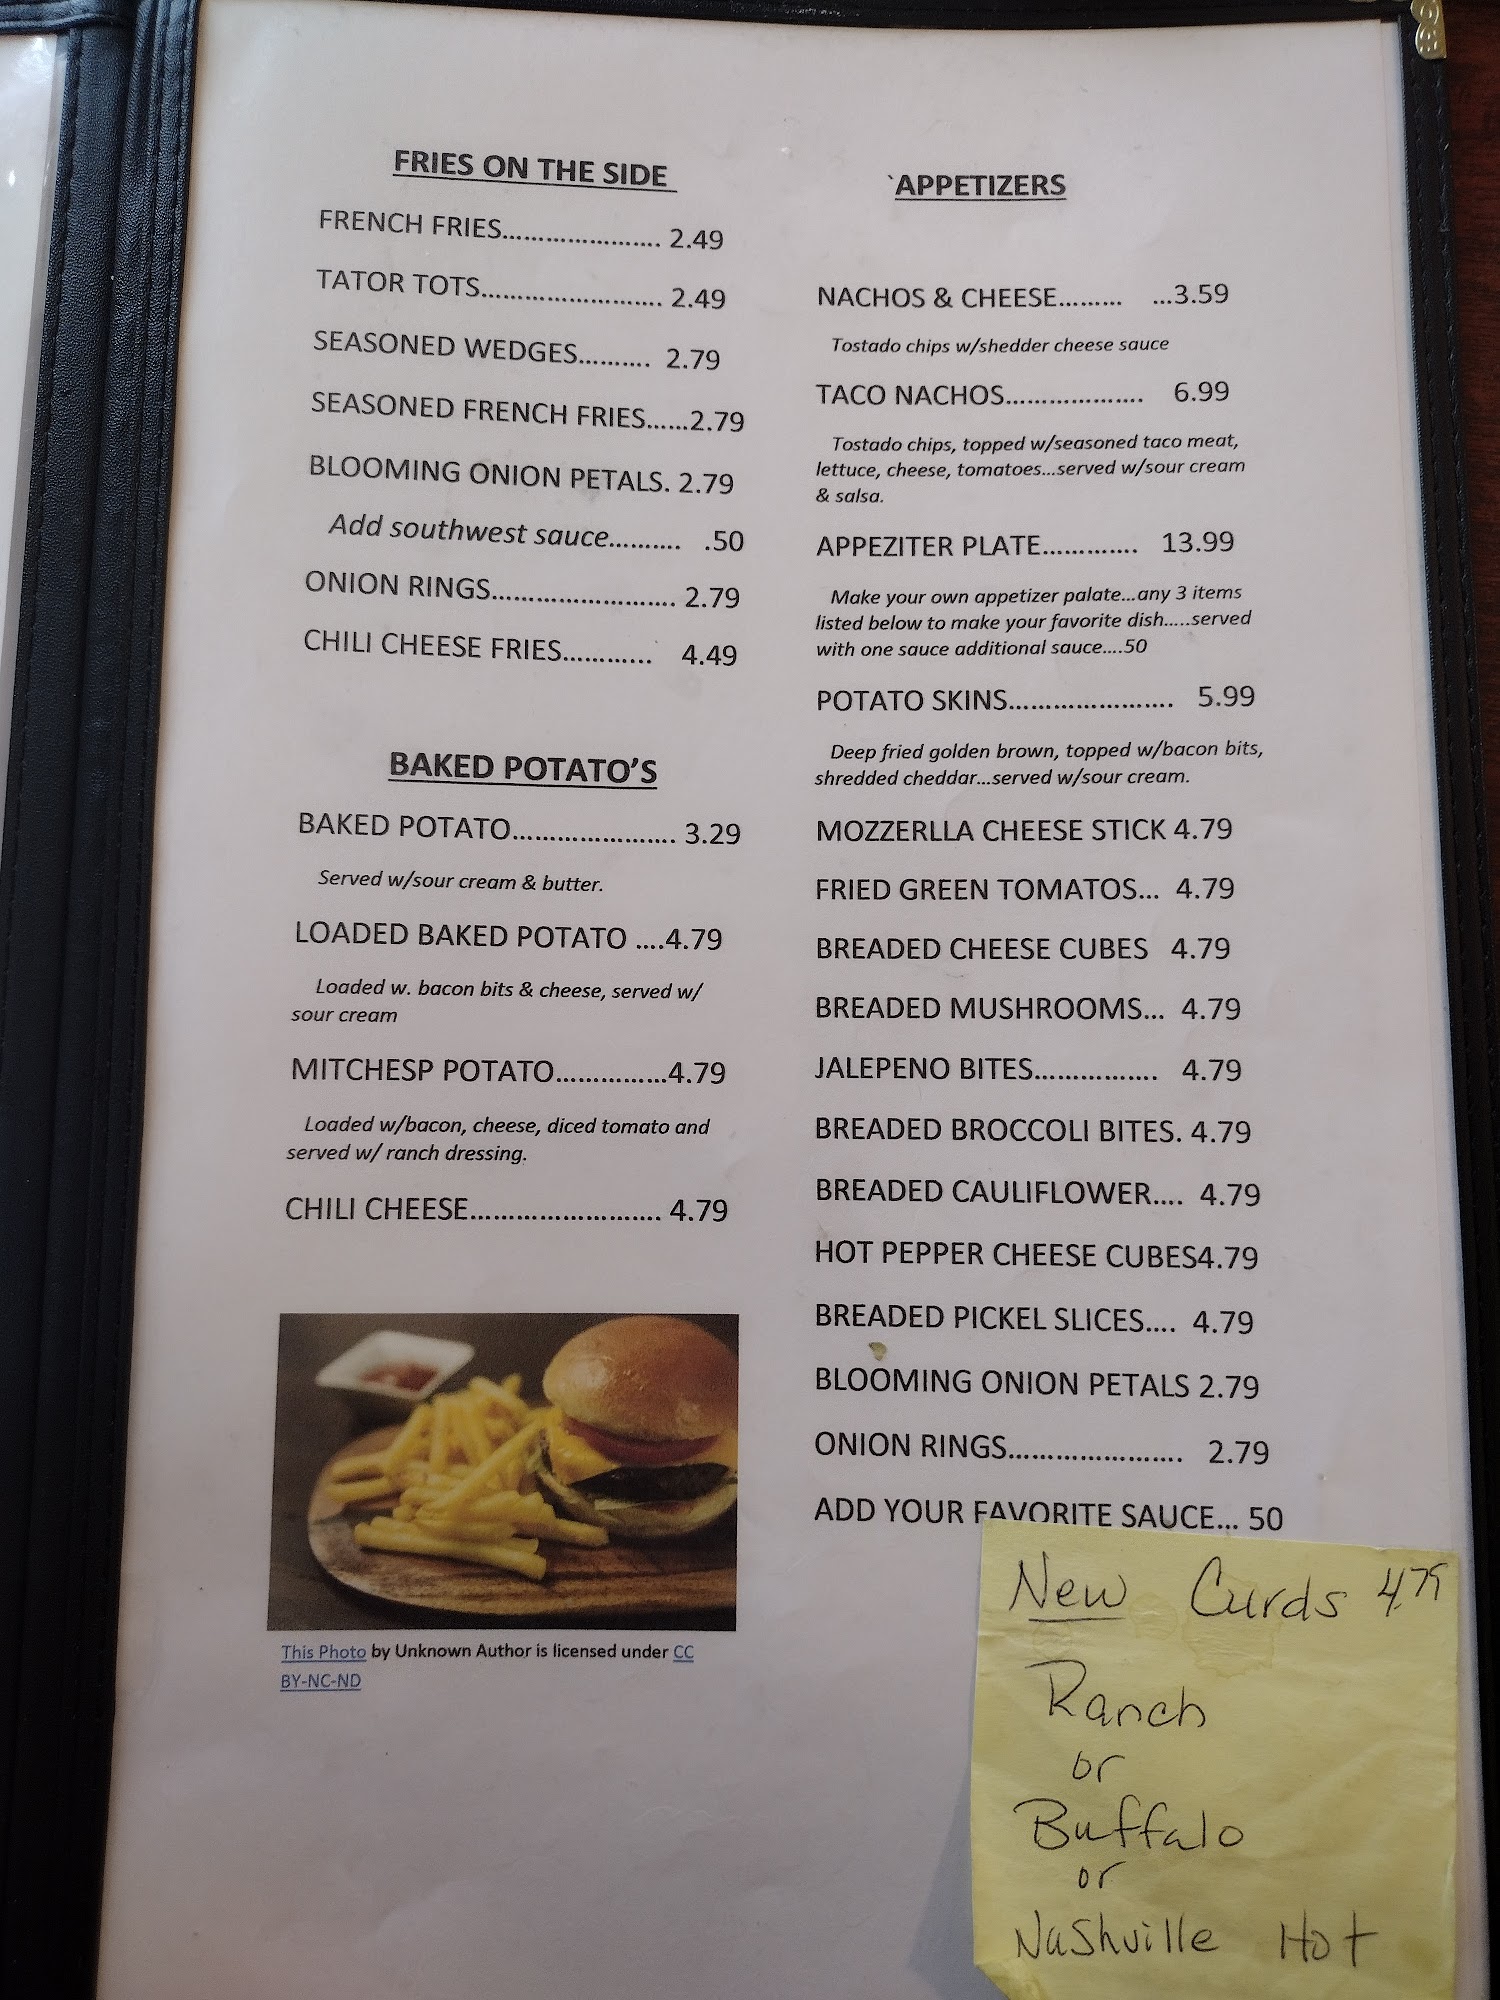 FRIES ON THE SIDE
FRENCH FRIES...................... 2.49
TATOR TOTS......................... 2.49
SEASONED WEDGES.......... 2.79
SEASONED FRENCH FRIES......2.79
BLOOMING ONION PETALS. 2.79
Add southwest sauce.......... .50
ONION RINGS......................... 2.79
CHILI CHEESE FRIES............ 4.49
BAKED POTATO'S
BAKED POTATO....................... 3.29
Served w/sour cream & butter.
LOADED BAKED POTATO ....4.79
Loaded w. bacon bits & cheese, served w/
sour cream
MITCHESP POTATO...............4.79
Loaded w/bacon, cheese, diced tomato and
served w/ ranch dressing.
CHILI CHEESE.......................... 4.79
This Photo by Unknown Author is licensed under CC
BY-NC-ND
`APPETIZERS
NACHOS & CHEESE......... ...3.59
Tostado chips w/shedder cheese sauce
TACO NACHOS................... 6.99
Tostado chips, topped w/seasoned taco meat,
lettuce, cheese, tomatoes...served w/sour cream
& salsa.
APPEZITER PLATE............. 13.99
Make your own appetizer palate...any 3 items
listed below to make your favorite dish.....served
with one sauce additional sauce....50
POTATO SKINS....................... 5.99
Deep fried golden brown, topped w/bacon bits,
shredded cheddar...served w/sour cream.
MOZZERLLA CHEESE STICK 4.79
FRIED GREEN TOMATOS... 4.79
BREADED CHEESE CUBES 4.79
BREADED MUSHROOMS... 4.79
JALEPENO BITES................. 4.79
BREADED BROCCOLI BITES. 4.79
BREADED CAULIFLOWER.... 4.79
HOT PEPPER CHEESE CUBES4.79
BREADED PICKEL SLICES.... 4.79
BLOOMING ONION PETALS 2.79
ONION RINGS........................ 2.79
ADD YOUR FAVORITE SAUCE... 50
New Curds 4.79
Ranch
or
Buffalo
or
Nashville Hot